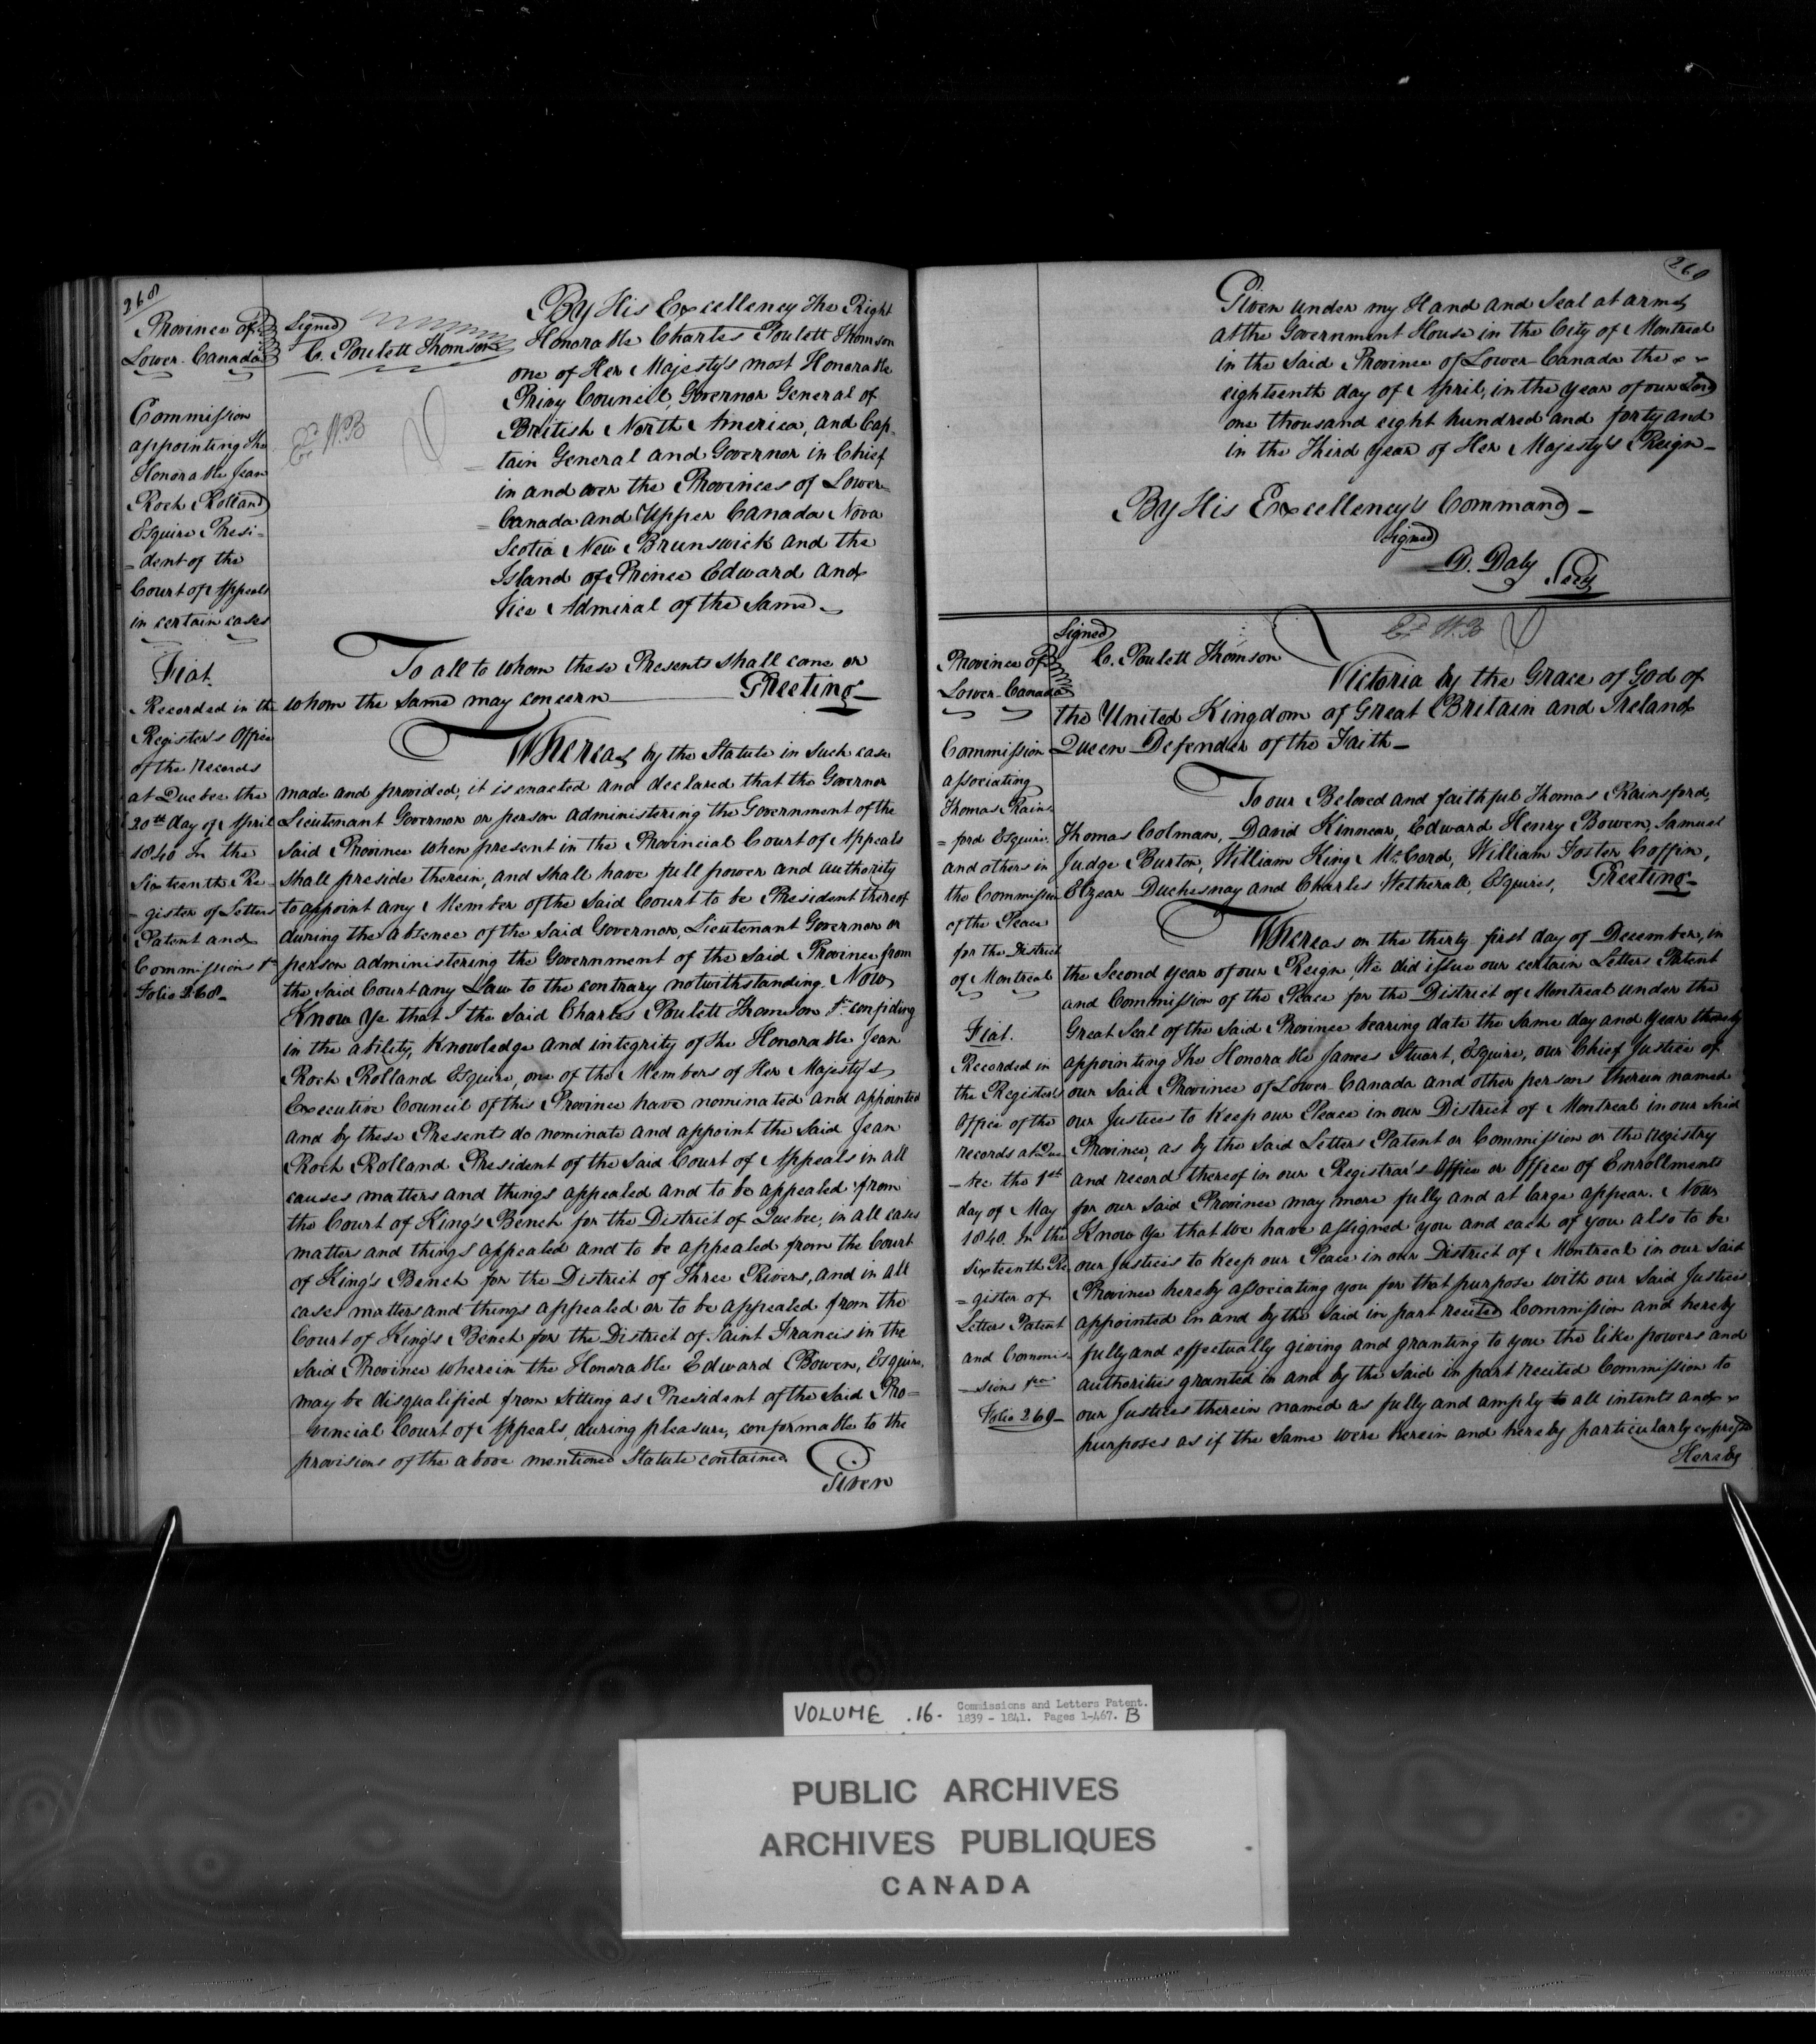 268
Province of
Lower-Canada
Signed
C. Poulett Thomson
Commission
appointing the
Honorable Jean
Roch Rolland
Esquire Presi-
= dent of the
Court of Appeals
in certain cases
Fiat.
Recorded in the
Register's Office
of the Records
at Quebec the
20th day of April
1840 In the
Sixteenth Re-
= gister of Letters
Patent and
Commissions &c
Folio 268-
Ex W.B
By His Excellency The Right
Honorable Charles Poulett Thomson
one of Her Majesty's most Honorable
Privy Council, Governor General of
British North America, and Cap-
= tain General and Governor in Chief
in and over the Provinces of Lower=
= Canada and Upper Canada Nova
Scotia New Brunswick and the
Island of Prince Edward and
Vice Admiral of the Same-
To all to whom these Presents shall come or
whom the same may concern Greeting-
Whereas by the Statute in such case
made and provided, it is enacted and declared that the Governor
Lieutenant Governor or person administering the Government of the
said Province when present in the Provincial Court of Appeals
shall preside therein, and shall have full power and authority
to appoint any Member of the said Court to be President thereof
during the absence of the said Governor, Lieutenant Governor or
person administering the Government of the said Province from
the said Court any Law to the contrary notwithstanding. Now
Know Ye that I the said Charles Poulett Thomson &c confiding
in the ability, knowledge and integrity of the Honorable Jean
Roch Rolland Esquire, one of the Members of Her Majesty's
Executive Council of this Province have nominated and appointed
and by these Presents do nominate and appoint the said Jean
Roch Rolland President of the said Court of Appeals in all
causes matters and things appealed and to be appealed from
the Court of King's Bench for the District of Quebec, in all cases
matters and things appealed and to be appealed from the Court
of King's Bench for the District of Three Rivers, and in all
cases matters and things appealed or to be appealed from the
Court of King's Bench for the District of Saint Francis in the
said Province wherein the Honorable Edward Bowen, Esquire,
may be disqualified from Sitting as President of the said Pro=
= vincial Court of Appeals, during pleasure, conformable to the
provisions of the above mentioned Statute contained.
Given
269
Given under my Hand and Seal at arms
at the Government House in the City of Montreal
in the said Province of Lower-Canada the x x
eighteenth day of April, in the year of our Lord
one thousand eight hundred and forty and
in the Third year of Her Majesty's Reign-
By His Excellency's Command-
Signed
D. Daly Secy
Ex W.B
Signed
C. Poulett Thomson
Province of
Lower-Canada
Commission
associating
Thomas Rains-
= ford Esquire
and others in
the Commission
of the Peace
for the District
of Montreal
Fiat.
Recorded in
the Registers
Office of the
records at Que-
- bec the 1st
day of May
1840. In the
Sixteenth Re-
= gister of
Letters Patent
and Commis-
- sions &ca
Folio 269-
Victoria by the Grace of God of
the United Kingdom of Great Britain and Ireland
Queen Defender of the Faith-
To our Beloved and faithful Thomas Rainsford,
Thomas Colman, David Kinnear, Edward Henry Bowen, Samuel
Judge Burton, William King McCord, William Foster Coffin,
Elzear Duchesnay and Charles Wetherall, Esquires, Greeting-
Whereas on the thirty first day of December, in
the Second year of our Reign We did issue our certain Letters Patent
and Commission of the Peace for the District of Montreal under the
Great Seal of the said Province bearing date the same day and year thereby
appointing The Honorable James Stuart, Esquire, our Chief Justice of
our said Province of Lower-Canada and other persons therein named
our Justices to keep our Peace in our District of Montreal in our said
Province, as by the said Letters Patent or Commission or the registry
and record thereof in our Registrar's Office or Office of Enrollments
for our said Province may more fully and at large appear. Now
Know Ye that we have assigned you and each of you also to be
our Justices to keep our Peace in our District of Montreal in our said
Province hereby associating you for that purpose with our said Justices
appointed in and by the said in part recited Commission and hereby
fully and effectually giving and granting to you the like powers and
authorities granted in and by the said in part recited Commission to
our Justices therein named as fully and amply to all intents and x x
purposes as if the same were herein and hereby particularly expressed
Hereby
VOLUME .16. Commissions and Letters Patent.
1839 - 1841. Pages 1-467. B
PUBLIC ARCHIVES
ARCHIVES PUBLIQUES
CANADA